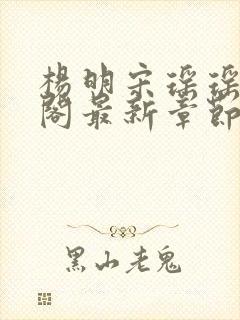 杨明宋瑶瑶
阁最新章节
黑山老鬼